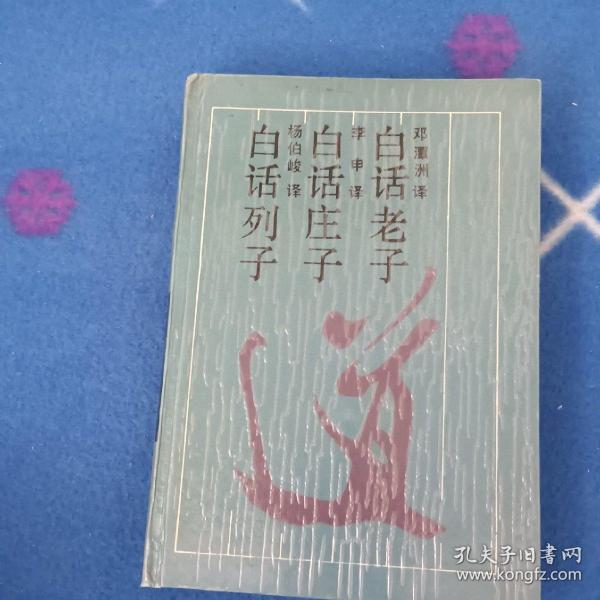 邓潭洲 译
白话老子
李申 译
白话庄子
杨伯峻 译
白话列子
道
孔夫子旧书网
www.kongfz.com